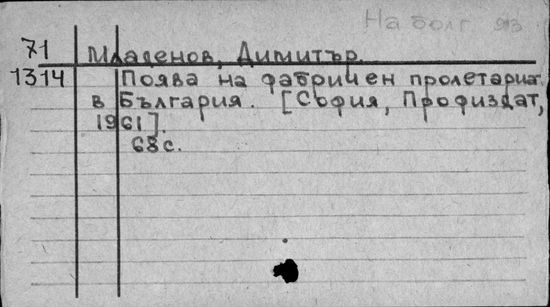 На болг
71 Младенов, Димитър.
1314 Поява на фабричен пролетариат
в България. [София, Профиздат,
1961].
68 с.